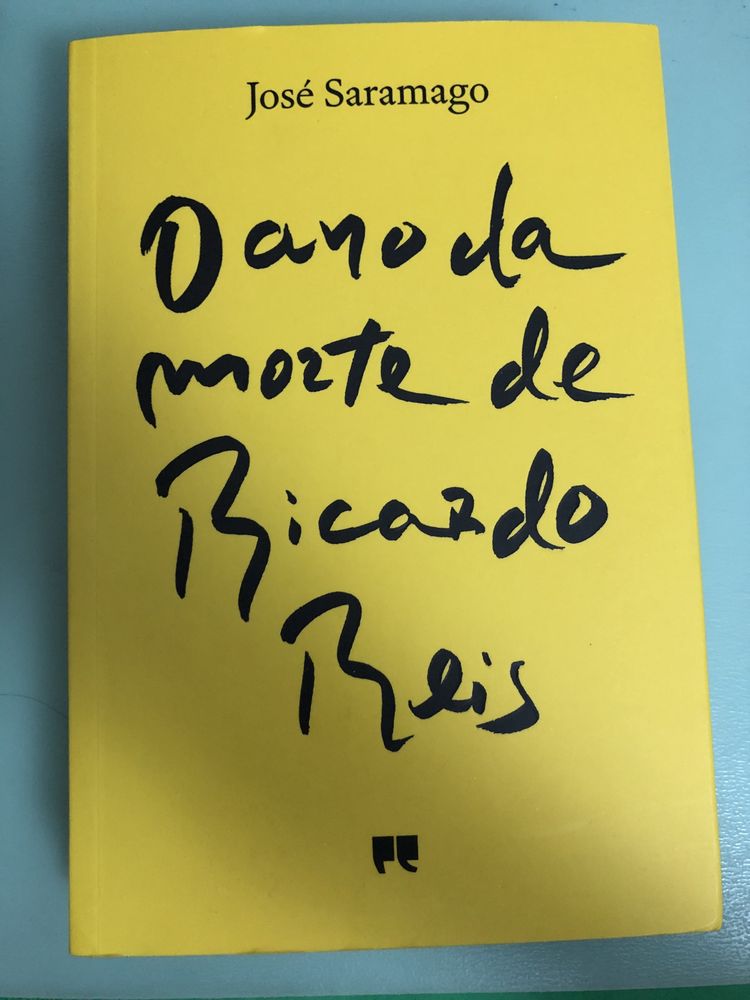 José Saramago
O ano da
morte de
Ricardo
Reis